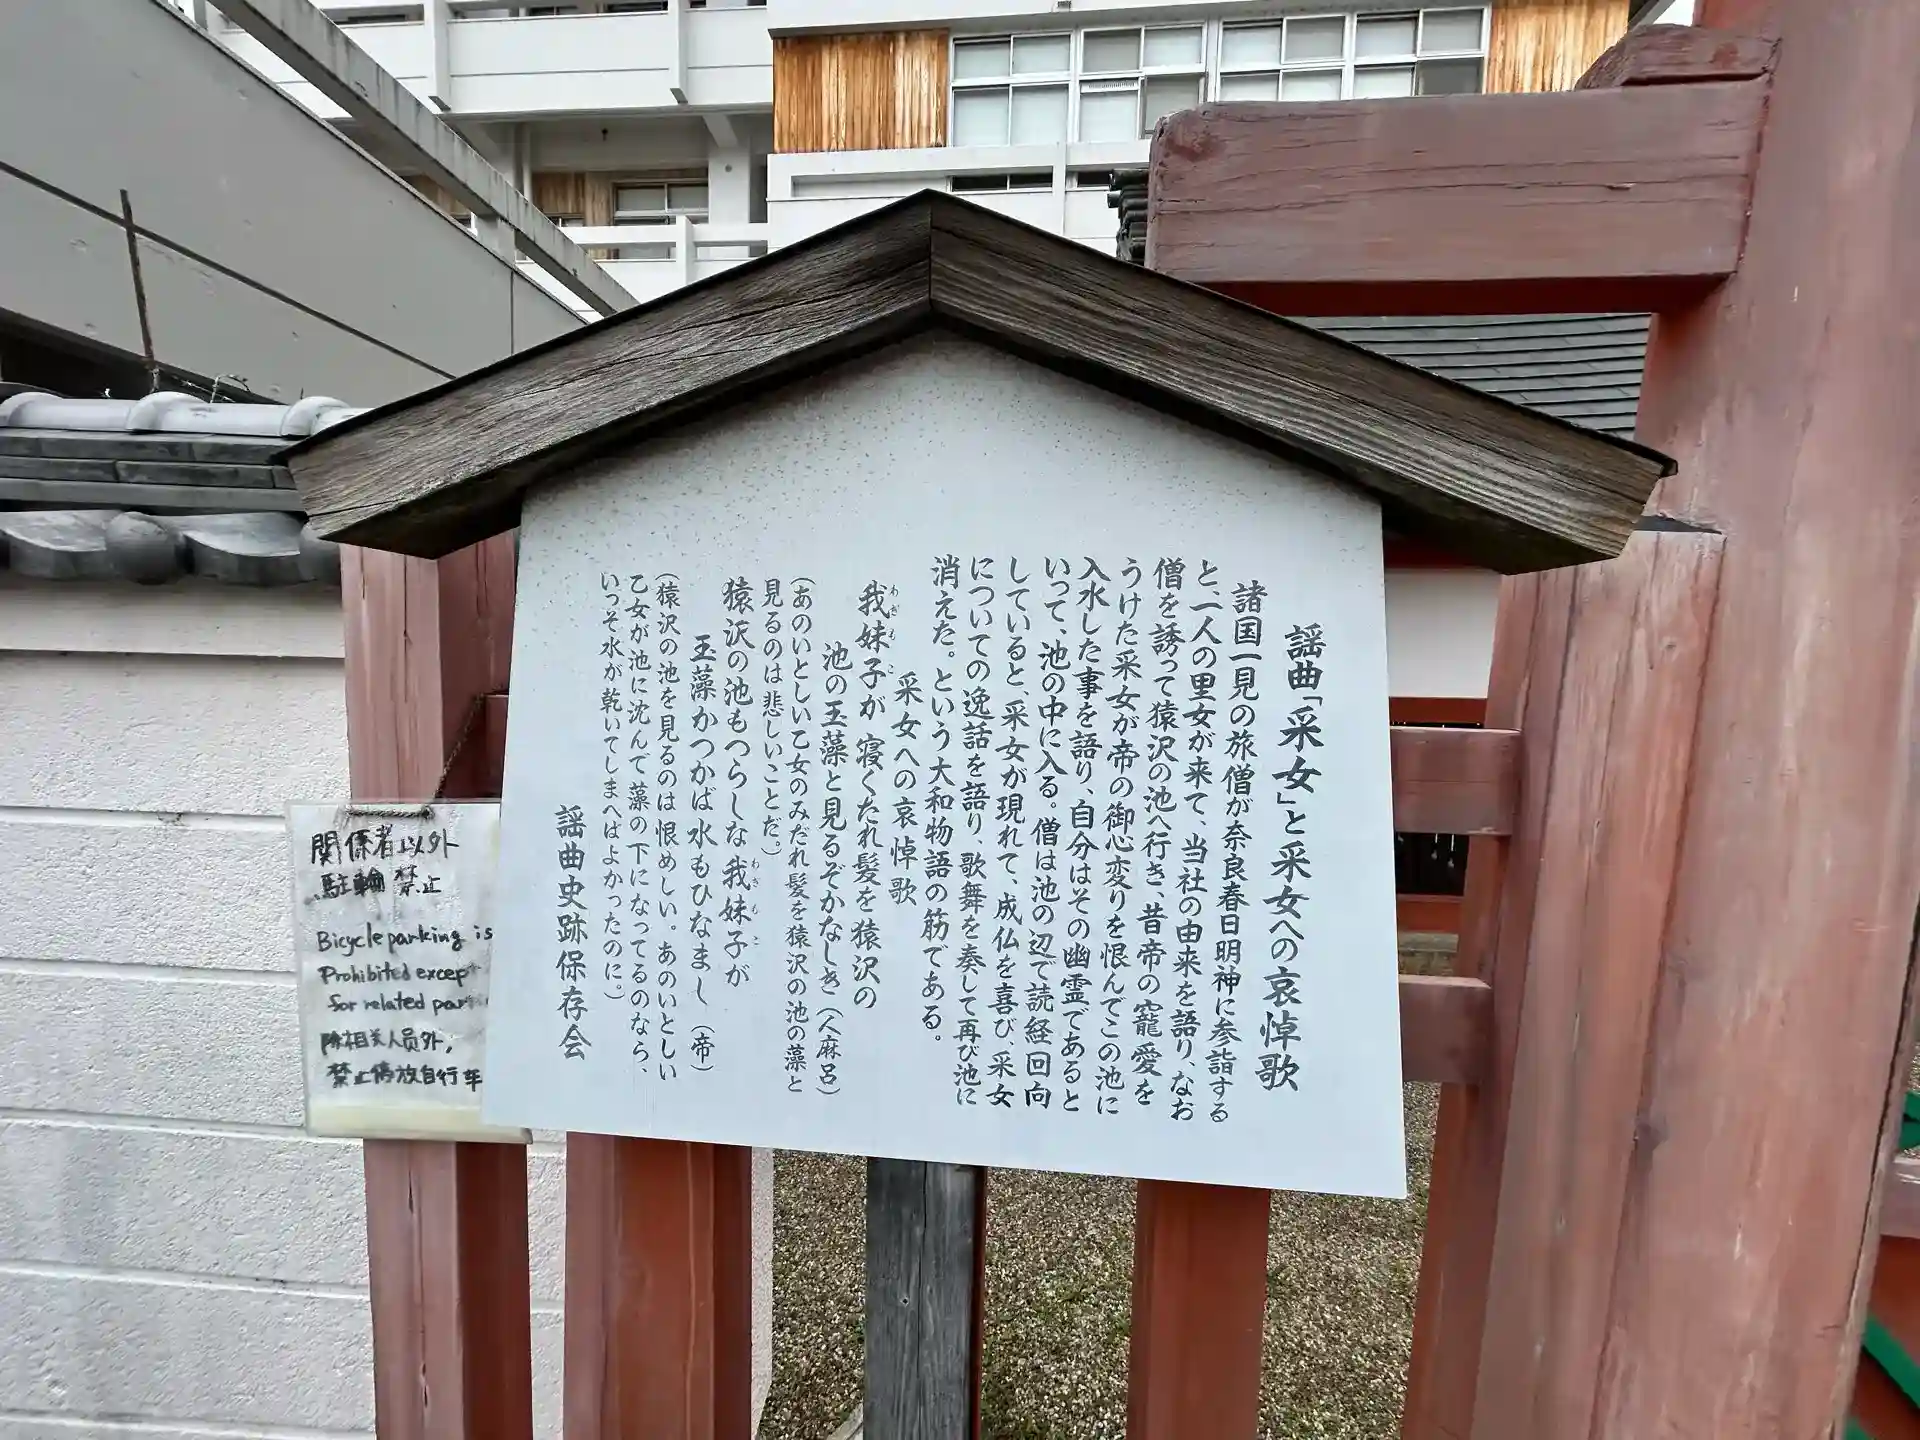 謡曲「采女」と采女への哀悼歌
諸国一見の旅僧が奈良春日明神に参詣する
と、一人の里女が来て、当社の由来を語り、なお
僧を誘って猿沢の池へ行き、昔帝の寵愛を
うけた采女が帝の御心変りを恨んでこの池に
入水した事を語り、自分はその幽霊であると
いって、池の中に入る。僧は池の辺で読経回向
していると、采女が現れて、成仏を喜び、采女
についての逸話を語り、歌舞を奏して再び池に
消えた。という大和物語の筋である。
采女への哀悼歌
我妹子が寝くたれ髪を猿沢の
わぎもこ
池の玉藻と見るぞかなしき(人麻呂)
(あのいとしい乙女のみだれ髪を猿沢の池の藻と
見るのは悲しいことだ。)
猿沢の池もつらしな我妹子が
わぎもこ
玉藻かつかば水もひなまし(帝)
(猿沢の池を見るのは恨めしい。あのいとしい
乙女が池に沈んで藻の下になってるのなら、
いっそ水が乾いてしまへばよかったのに。)
謡曲史跡保存会
関係者以外
駐輪禁止
Bicycle parking is
Prohibited except
for related par
除相关人员外,
禁止停放自行车